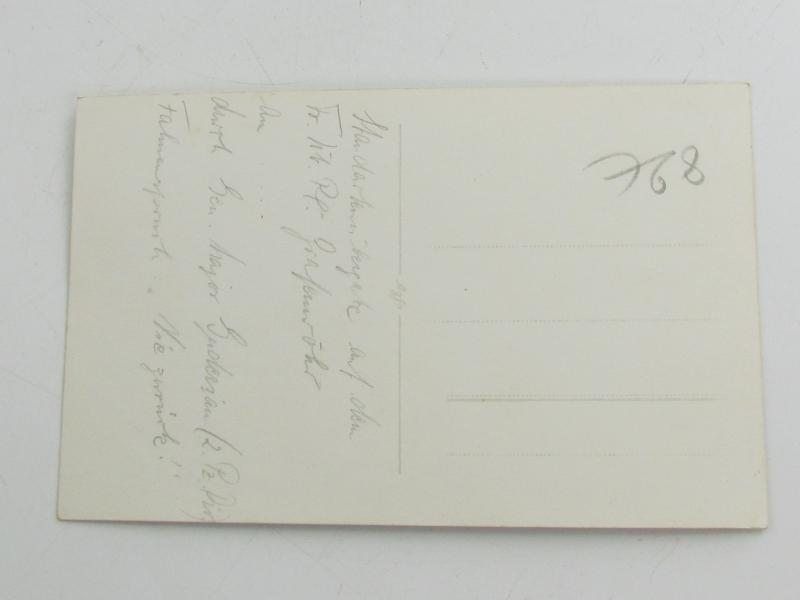 Standartenübergabe auf dem
Tr. Üb. Pl. Grafenwöhr
Am . . .
durch Gen. Major Guderian (2. Pz. Div.
Fahnenspruch . . Nie zurück!"